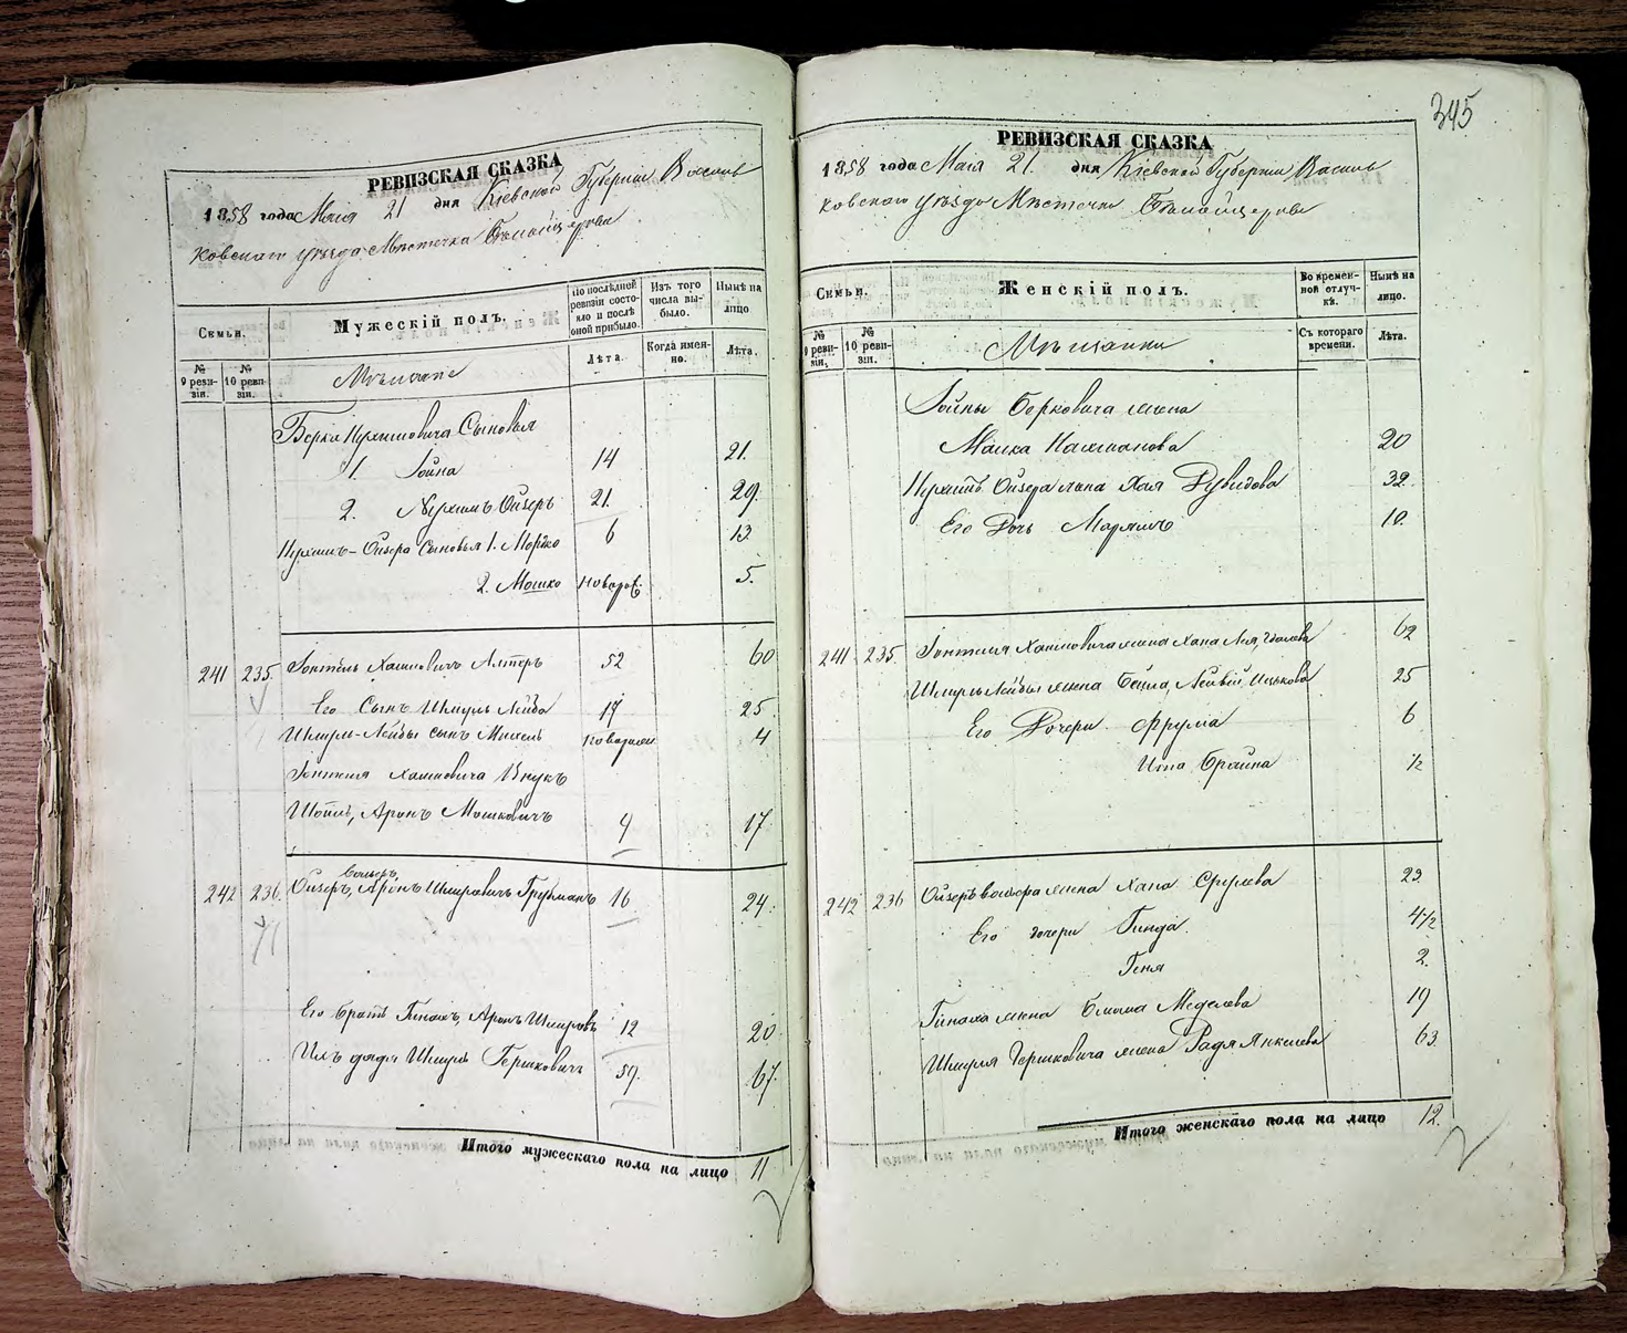 345
РЕВИЗСКАЯ СКАЗКА
1858 года Мая 21 дня Кіевской Губерніи Василь
ковскаго уѣзда Мѣстечка Бѣлойцеркви
Семьи.
Мужескій полъ.
По послѣдней ревизіи состояло и послѣ оной прибыло.
Изъ того числа выбыло.
Нынѣ на лицо
№ 9 ревизіи.
№ 10 ревизіи.
Мѣщане
Лѣта.
Когда именно.
Лѣта.
Берка Нухимовича Сыновья
1. Іойна 14 21.
2. Нухимъ Ойзеръ 21. 29.
Нухимъ-Ойзера Сыновья 1. Мошко 6 13
2. Мошко новорож: 5.
241 235. Хаимовичъ Алтеръ 52 60
Его Сынъ Шмуль Лейба 17 25.
Шмуль-Лейбы сынъ новорожден 4
Хаимовича Внукъ
Аронъ Мошковичъ 9 17
Вольфъ,
242 236. Ойзеръ, Аронъ Шмулевичъ 16 24.
Его братъ Пинахъ, Аронъ 12 20.
Ихъ дядя Шмуль Гершковичъ 59. 67.
Итого мужескаго пола на лицо 11
РЕВИЗСКАЯ СКАЗКА
1858 года Мая 21. дня Кіевской Губерніи Василь
ковскаго уѣзда Мѣстечка Бѣлойцеркви
Семьи.
Женскій полъ.
Во временной отлучкѣ.
Нынѣ на лицо.
№ 9 ревизіи.
№ 10 ревизіи.
Мѣщанки
Съ котораго времени.
Лѣта.
Іойны Берковича жена
Малка Нахманова 20
Нухимъ Ойзера жена Хая Дувидова 32.
Его Дочь 10.
241 235. Хаимовича жена Хана Лея, 62
Шмуль Лейбы жена Бейла, Ицькова 25
Его Дочери Фрума 6
Брайна 1/2
242 236 Ойзеръ вольфа жена Хана Срулева 23.
Его дочери Гинда. 4 1/2
Геня 2.
Пинаха жена 19
Шмуля Гершковича жена Янкелева 63.
Итого женскаго пола на лицо 12.